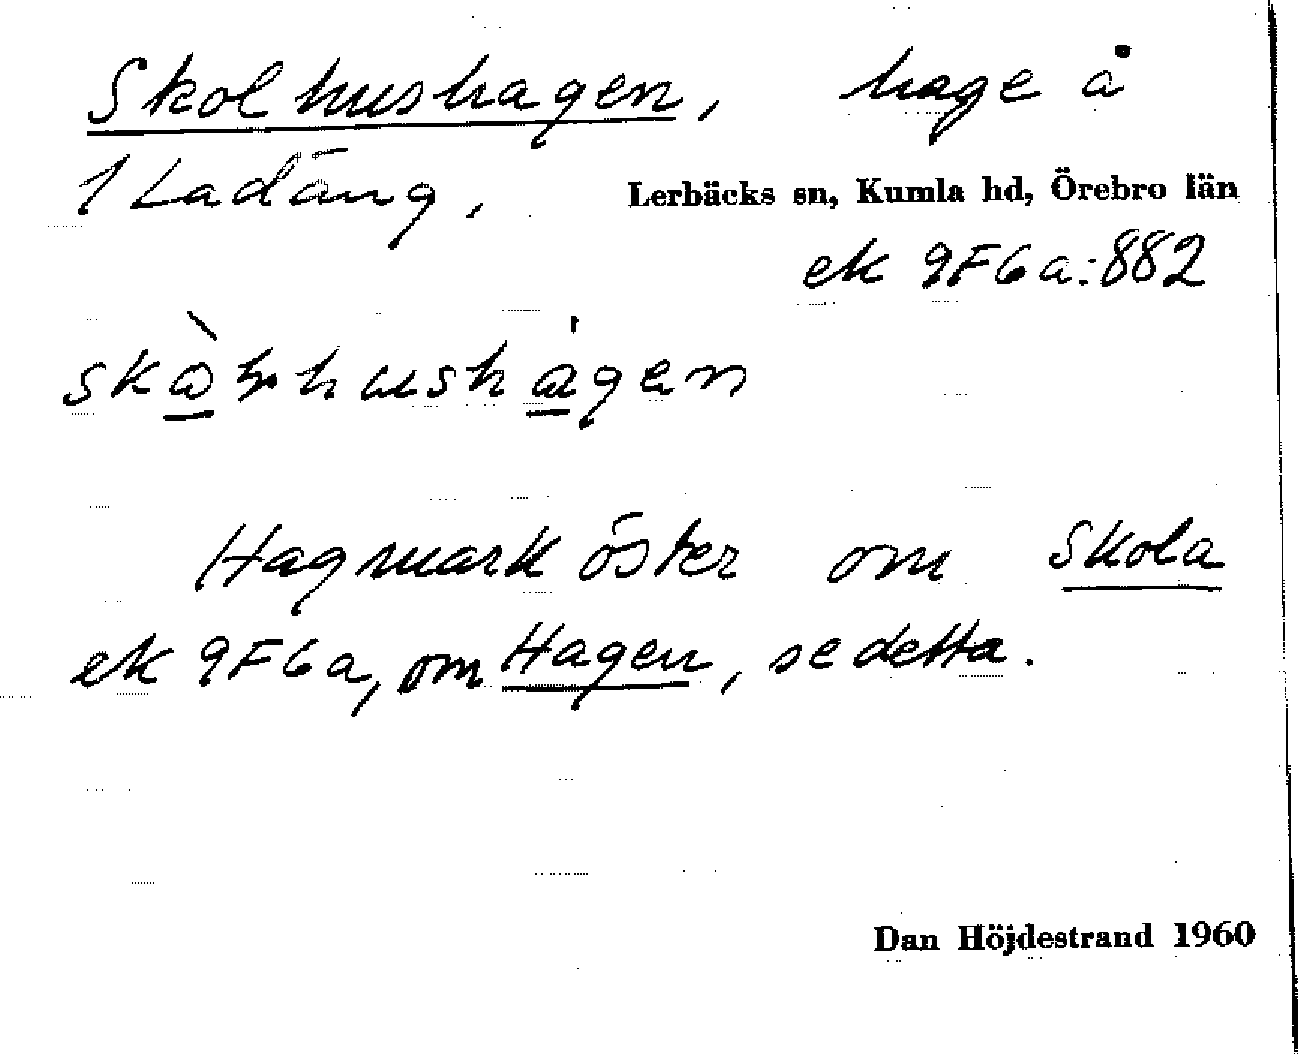 Skolhushagen, hage å
1 Ladäng, Lerbäcks sn, Kumla hd, Örebro län
ek 9F6a:882
Hagmark öster om Skola
ek 9F6a, om Hagen, se detta.
Dan Höjdestrand 1960